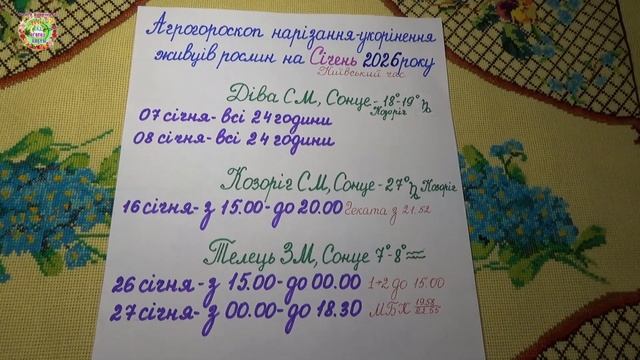 Агрогороскоп нарізання-укорінення
живців рослин на Січень 2026 року
Київський час
Діва СМ, Сонце - 18°-19° ♑
Козоріг
07 січня - всі 24 години
08 січня - всі 24 години
Козоріг СМ, Сонце - 27° ♑ Козоріг
16 січня - з 15.00 - до 20.00 Геката з 21.52
Телець ЗМ, Сонце 7°-8° ♒
26 січня - з 15.00 - до 00.00 1+2 до 15.00
27 січня - з 00.00 - до 18.30 МБК 19.58